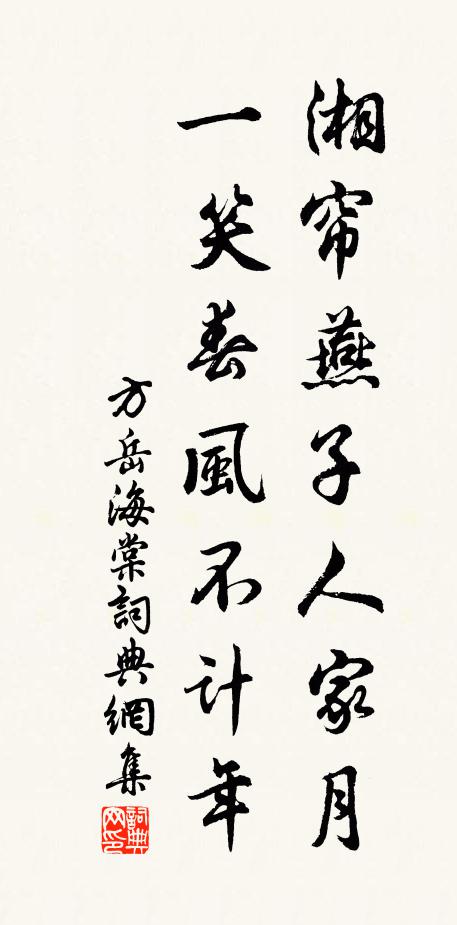 湘帘燕子人家月
一笑春風不計年
方岳海棠詞典網集
詞典
网印